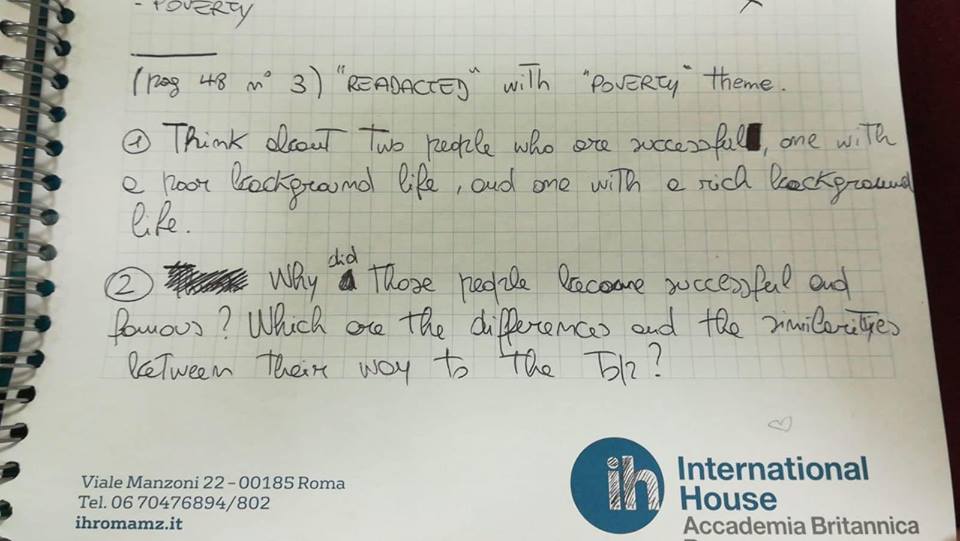 - POVERTY
(pag 48 n° 3) "READACTED" with "POVERTY" theme.
① Think about two people who are successful, one with
a poor background life, and one with a rich background
life.
② Why did those people become successful and
famous? Which are the differences and the similarities
between their way to the top?
Viale Manzoni 22 – 00185 Roma
Tel. 06 70476894/802
ihromamz.it
ih
International
House
Accademia Britannica